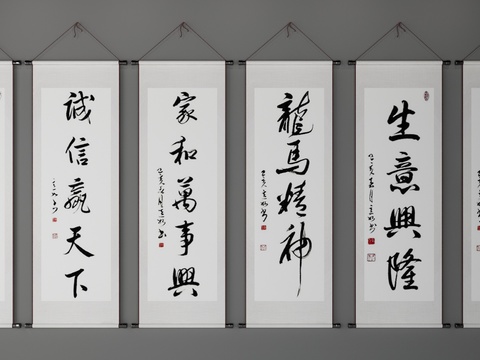 诚信赢天下
家和萬事興
龍馬精神
生意興隆